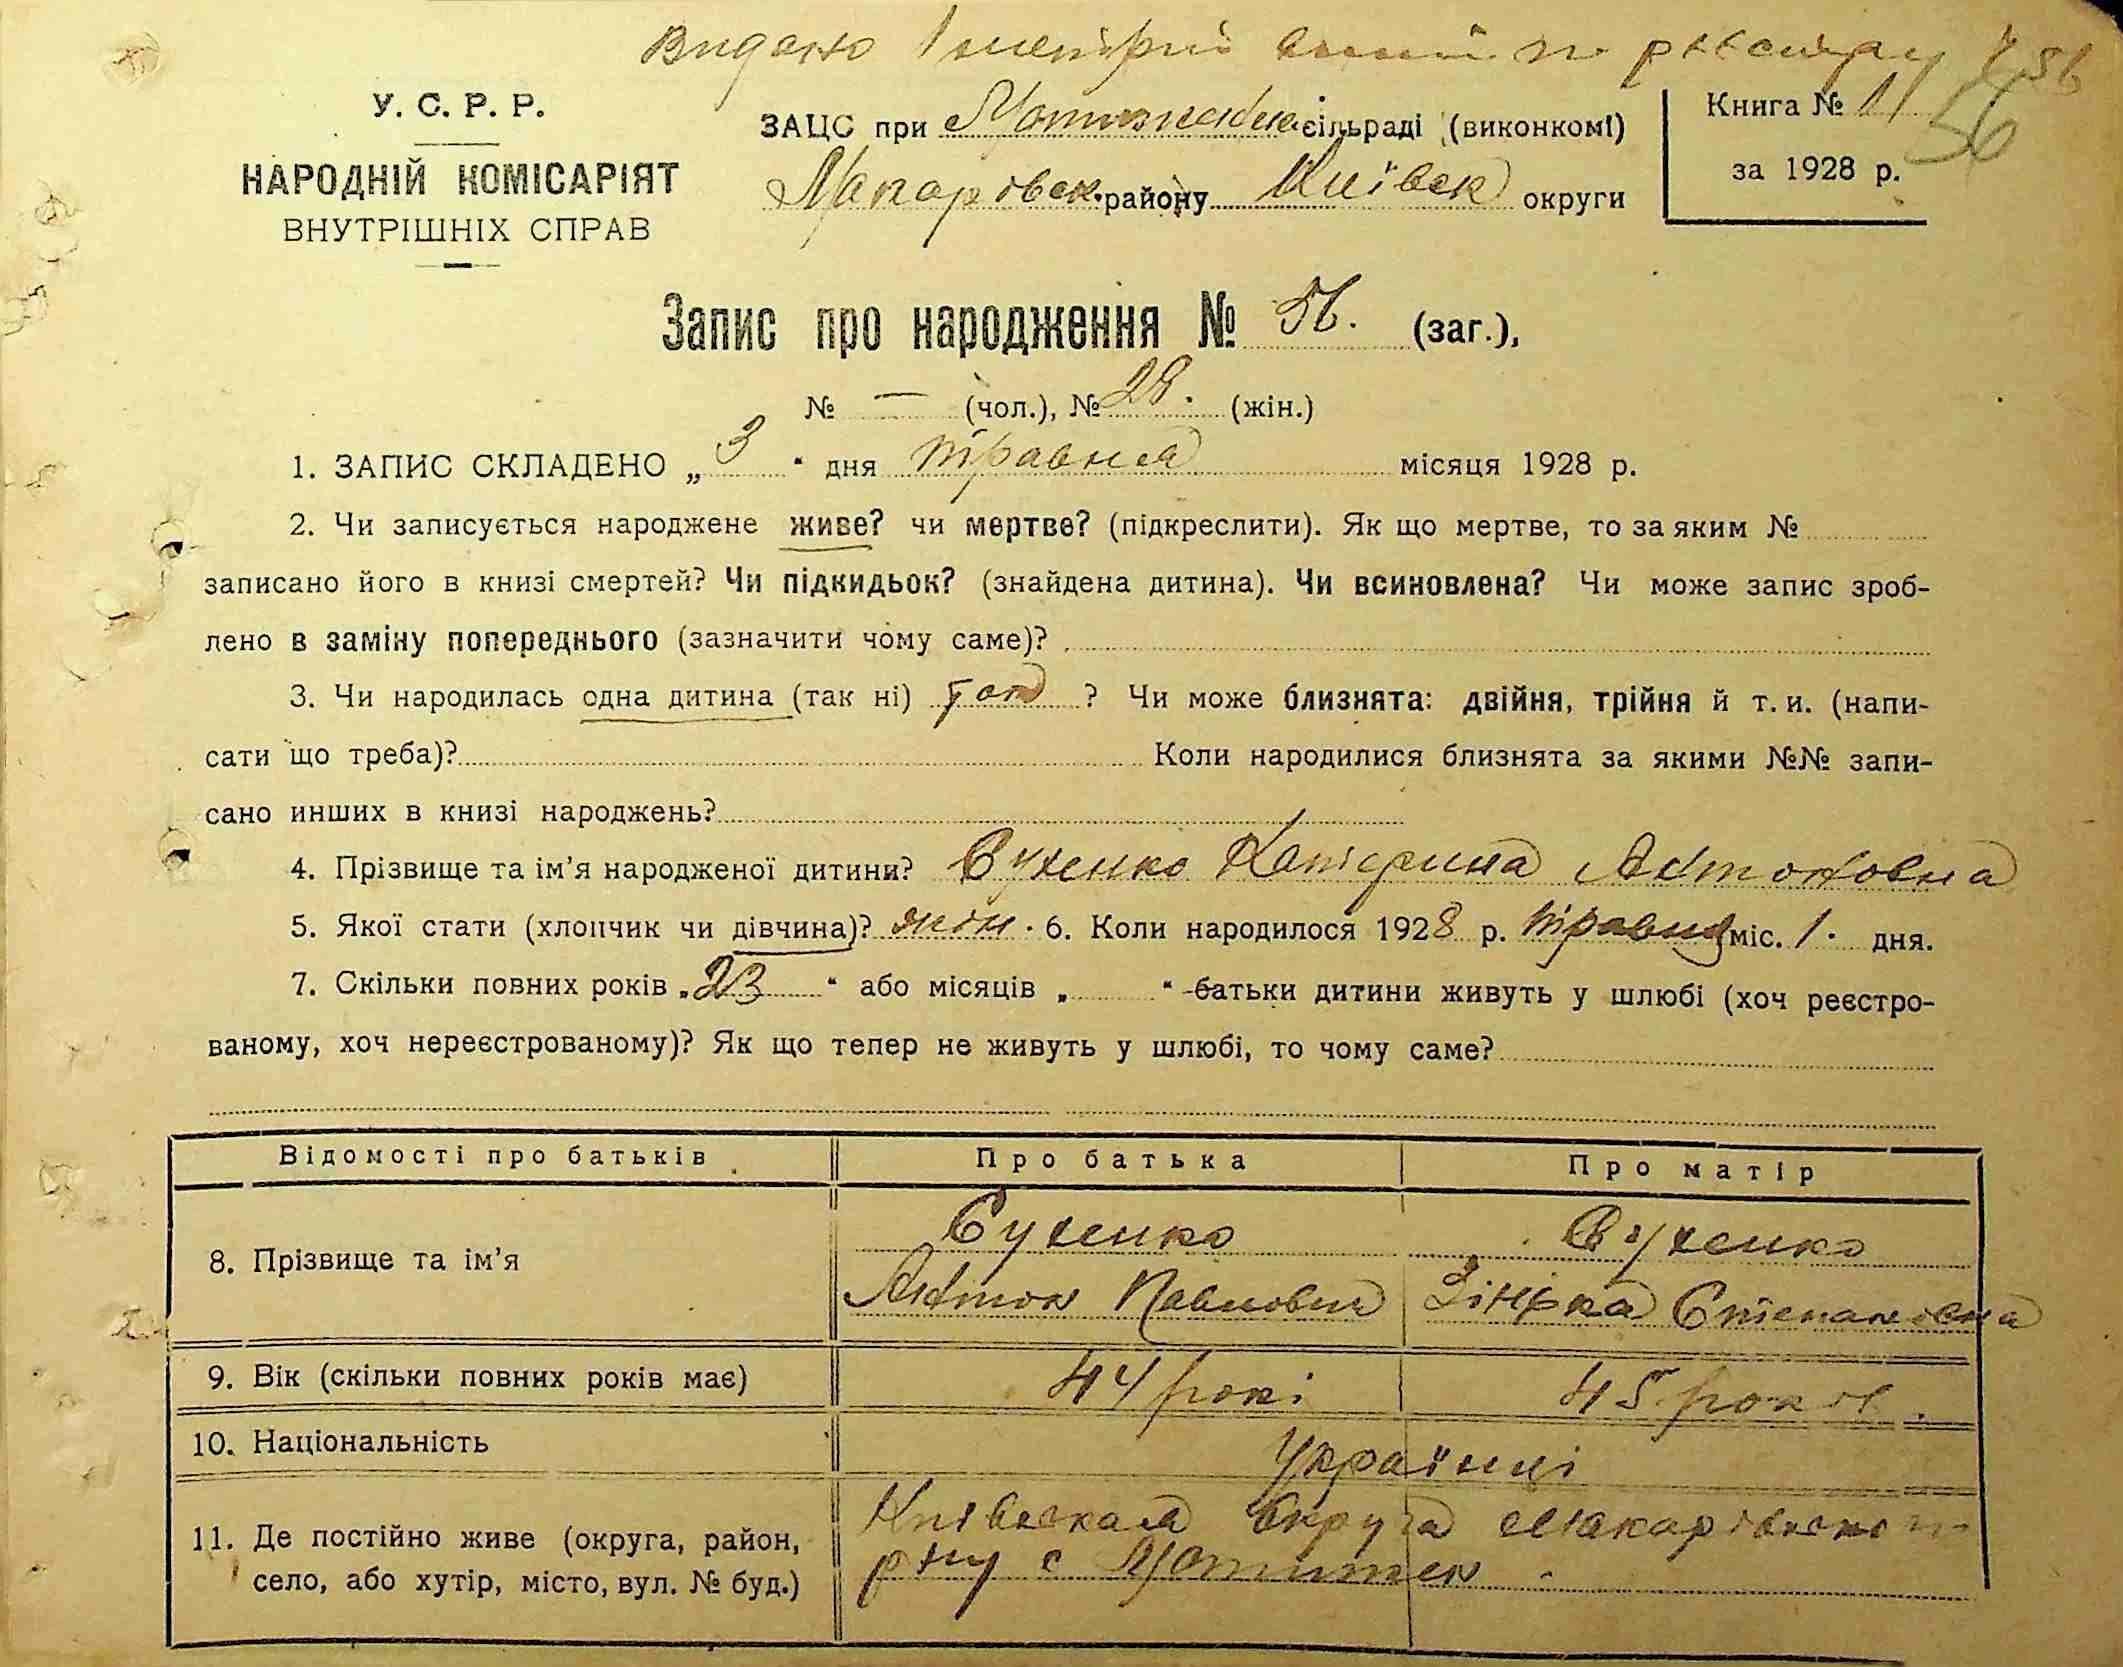 Видано
У. С. Р. Р.
НАРОДНІЙ КОМІСАРІЯТ
ВНУТРІШНІХ СПРАВ
ЗАЦС при сільраді (виконкомі)
Макарівск. району Київск округи
Книга № 11 56
за 1928 р.
Запис про народження № 56. (заг.),
№ — (чол.), № 28. (жін.)
1. ЗАПИС СКЛАДЕНО „ 3 “ дня травня місяця 1928 р.
2. Чи записується народжене живе? чи мертве? (підкреслити). Як що мертве, то за яким №
записано його в книзі смертей? Чи підкидьок? (знайдена дитина). Чи всиновлена? Чи може запис зроб-
лено в заміну попереднього (зазначити чому саме)?
3. Чи народилась одна дитина (так ні) ? Чи може близнята: двійня, трійня й т. и. (напи-
сати що треба)? Коли народилися близнята за якими №№ запи-
сано инших в книзі народжень?
4. Прізвище та ім’я народженої дитини? Сухенко Катерина Антоновна
5. Якої стати (хлопчик чи дівчина)? жін. 6. Коли народилося 1928 р. травня міс. 1. дня.
7. Скільки повних років „ 23 “ або місяців „ “ батьки дитини живуть у шлюбі (хоч реєстро-
ваному, хоч нереєстрованому)? Як що тепер не живуть у шлюбі, то чому саме?
Відомості про батьків Про батька Про матір
8. Прізвище та ім’я
Сухенко Сухенко
Антон Павлович Зінька Степановна
9. Вік (скільки повних років має) 44 рокі 45 років.
10. Національність Українці
11. Де постійно живе (округа, район,
село, або хутір, місто, вул. № буд.)
округа
р-ну с